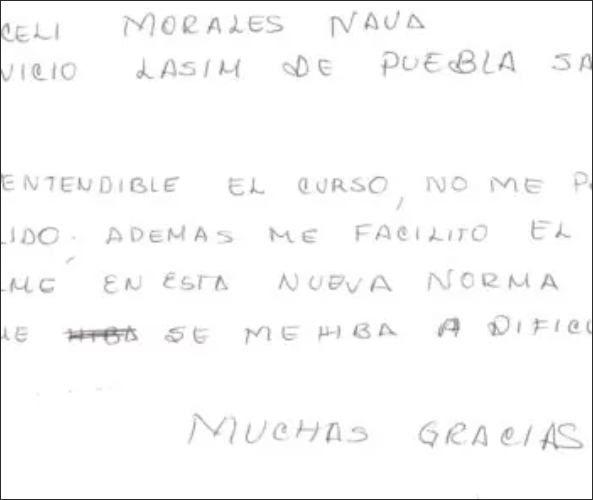 CELI MORALES NAVA
VICIO LASIM DE PUEBLA SA
ENTENDIBLE EL CURSO, NO ME P
LIDO. ADEMAS ME FACILITO EL
ME EN ESTA NUEVA NORMA
UE HIBA SE ME HIBA A DIFICU
MUCHAS GRACIAS